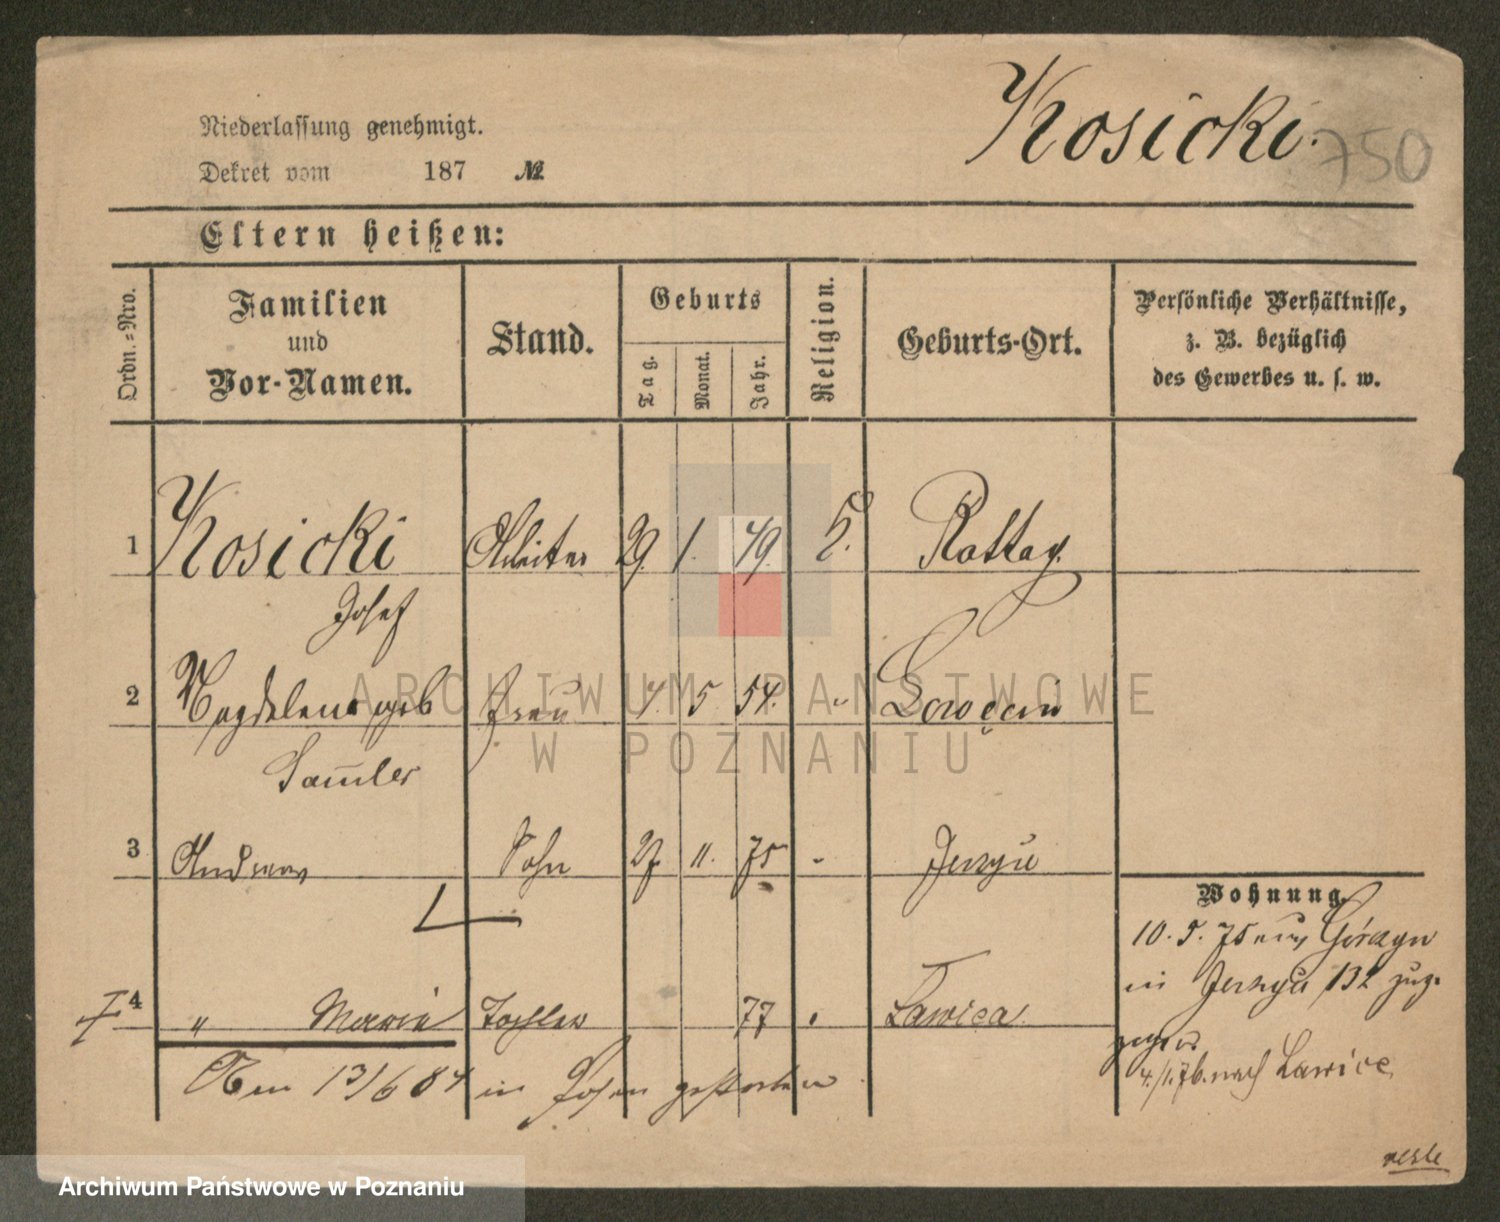 Kosicki.
750
Niederlassung genehmigt.
Dekret vom 187 №
Eltern heißen:
Ordn.-Nro.
Familien
und
Vor-Namen.
Stand.
Geburts
Tag.
Monat.
Jahr.
Religion.
Geburts-Ort.
Persönliche Verhältnisse,
z. B. bezüglich
des Gewerbes u. s. w.
1 Kosicki Arbeiter 29. 1. 49. Rattay.
Josef
2 Magdalena geb Frau 5 54. "
3 Andreas Sohn 27 11. 75 Jerzyce
Wohnung.
10. 5. 75 aus Górczyn
in Jerzyce 132 zug-
4 " Maria Tochter 77 Lawica
4/1. 76. nach Lawice
Am 13/6 84 in Posen gestorben
ARCHIWUM PAŃSTWOWE
W POZNANIU
Archiwum Państwowe w Poznaniu